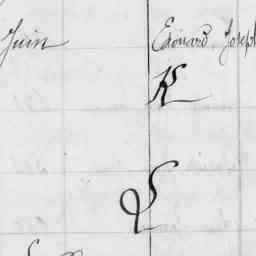 Juin Edouard, Joseph
K
L